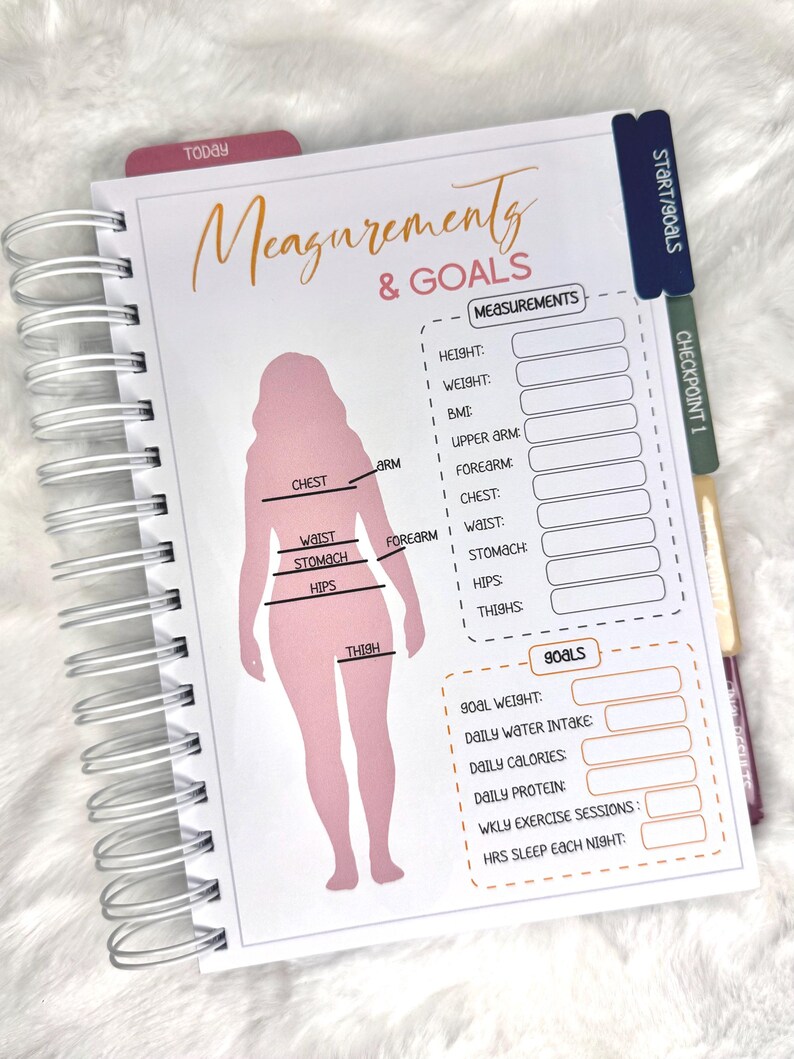 TODAY
Measurements
& GOALS
START/GOALS
CHECKPOINT 1
FINAL RESULTS
CHEST
ARM
WAIST
FOREARM
STOMACH
HIPS
THIGH
MEASUREMENTS
HEIGHT:
WEIGHT:
BMI:
UPPER ARM:
FOREARM:
CHEST:
WAIST:
STOMACH:
HIPS:
THIGHS:
GOALS
GOAL WEIGHT:
DAILY WATER INTAKE:
DAILY CALORIES:
DAILY PROTEIN:
WKLY EXERCISE SESSIONS :
HRS SLEEP EACH NIGHT: